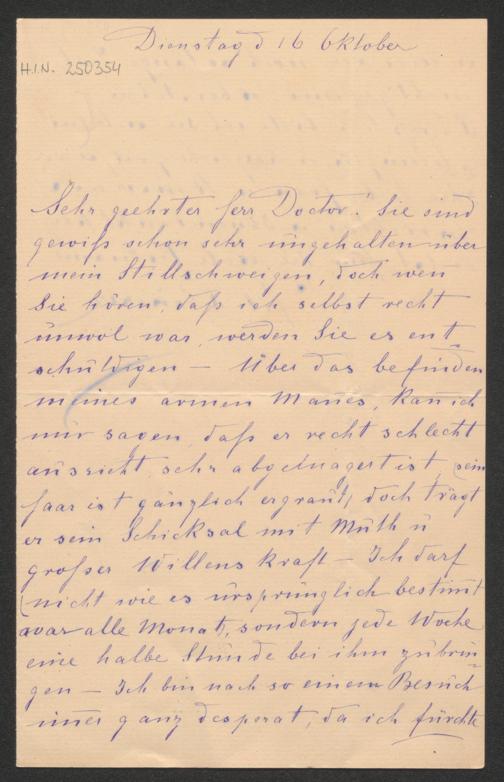 Dienstag d 16 Oktober
H.I.N. 250354
Sehr geehrter Herr Doctor! Sie sind
gewiß schon sehr ungehalten über
mein Stillschweigen, doch wen
Sie hören, daß ich selbst recht
unwol war, werden Sie es ent-
schuldigen – Über das befinden
meines armen Manes, kan ich
nur sagen, daß er recht schlecht
aussieht, sehr abgemagert ist, (sein
Haar ist gänzlich ergraut) doch trägt
er sein Schicksal mit Muth u
großer Willens kraft – Ich darf
(nicht wie es ursprünglich bestimt
war alle Monat), sondern jede Woche
eine halbe Stunde bei ihm zubrin
gen – Ich bin nach so einem Besuch
imer ganz desperat, da ich fürchte